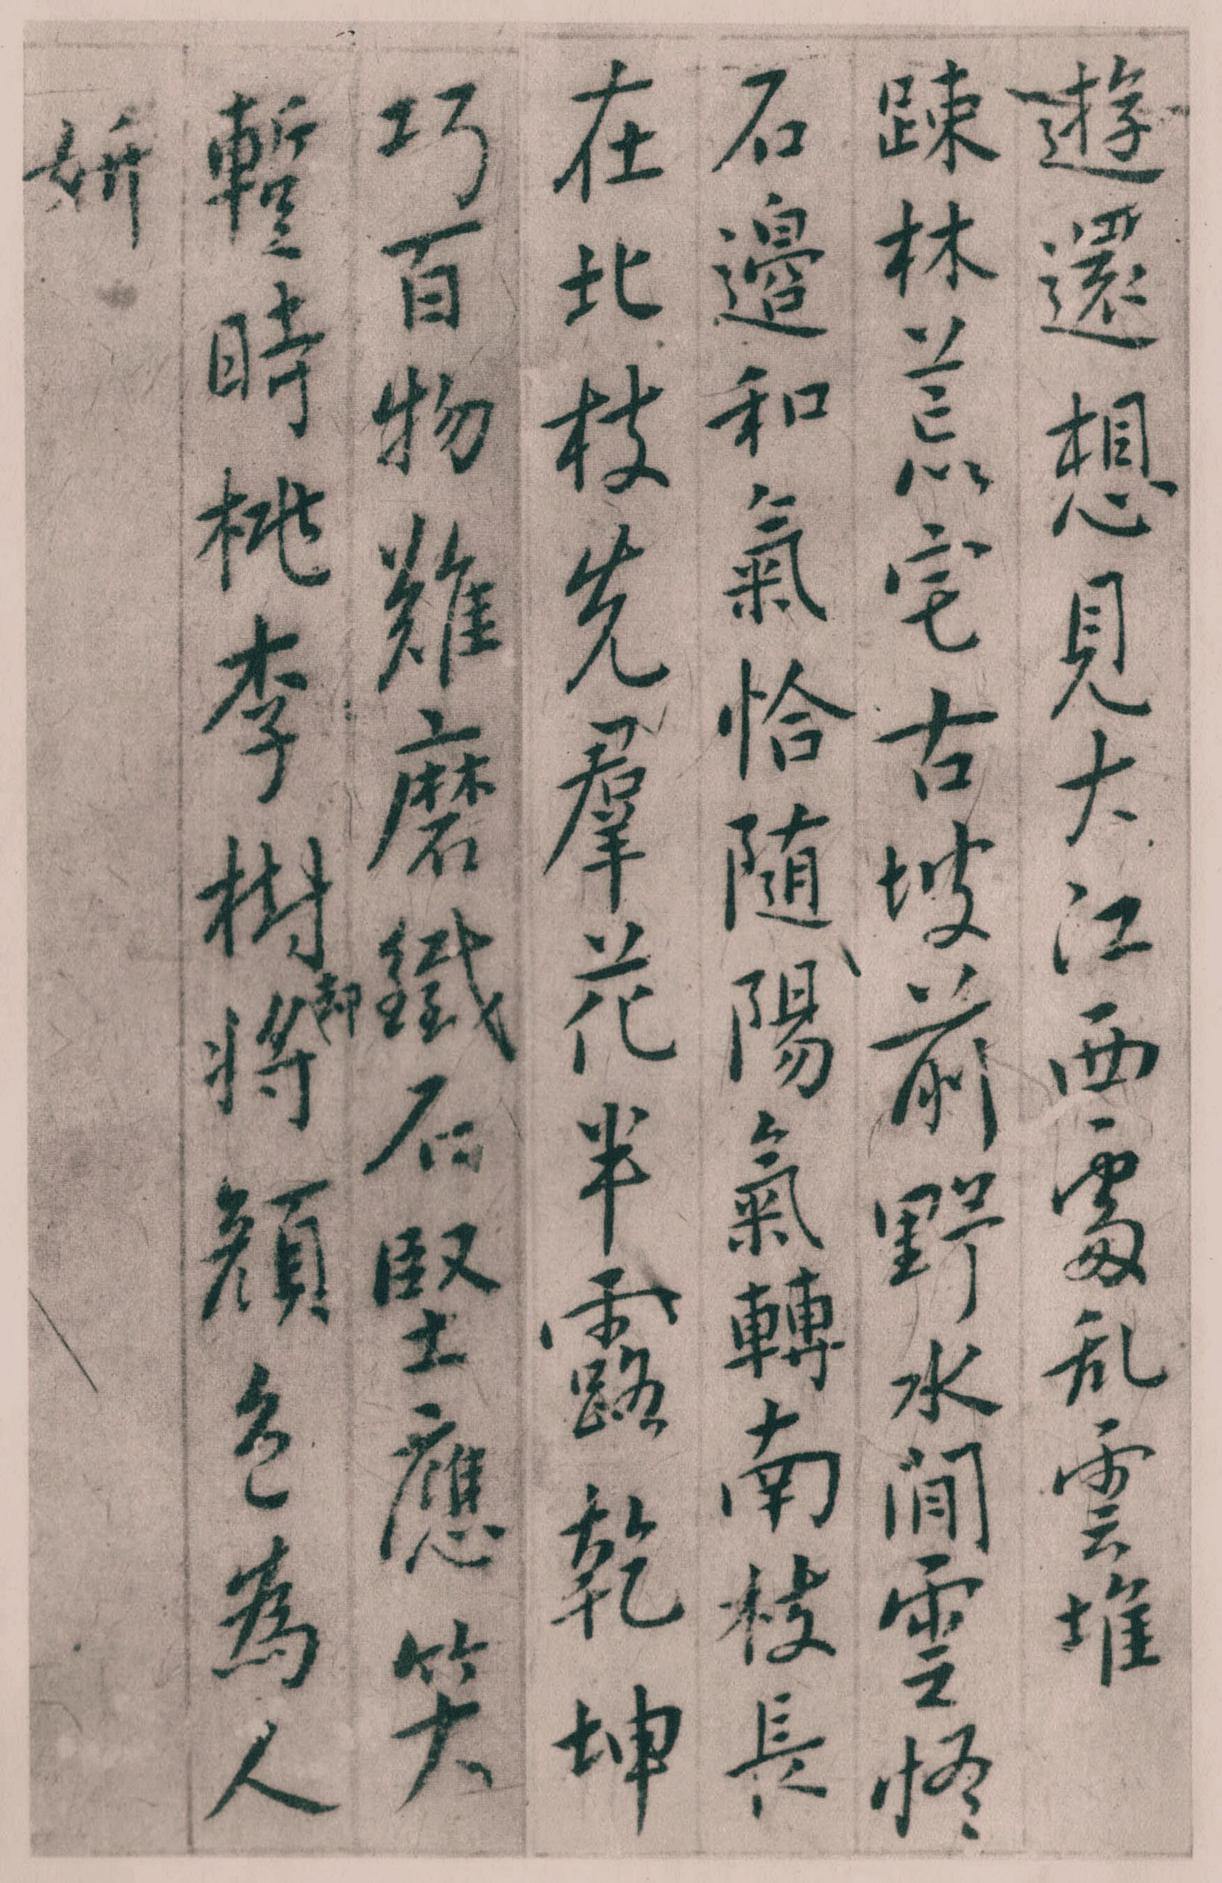 遊還想見大江西處乱雲堆
踈林荒宅古坡前野水閒雲恠
石邉和氣恰随陽氣轉南枝長
在北枝先羣花半露乾坤
巧百物難磨鐵石堅應笑
暫時桃李樹却将顔色為人
妍